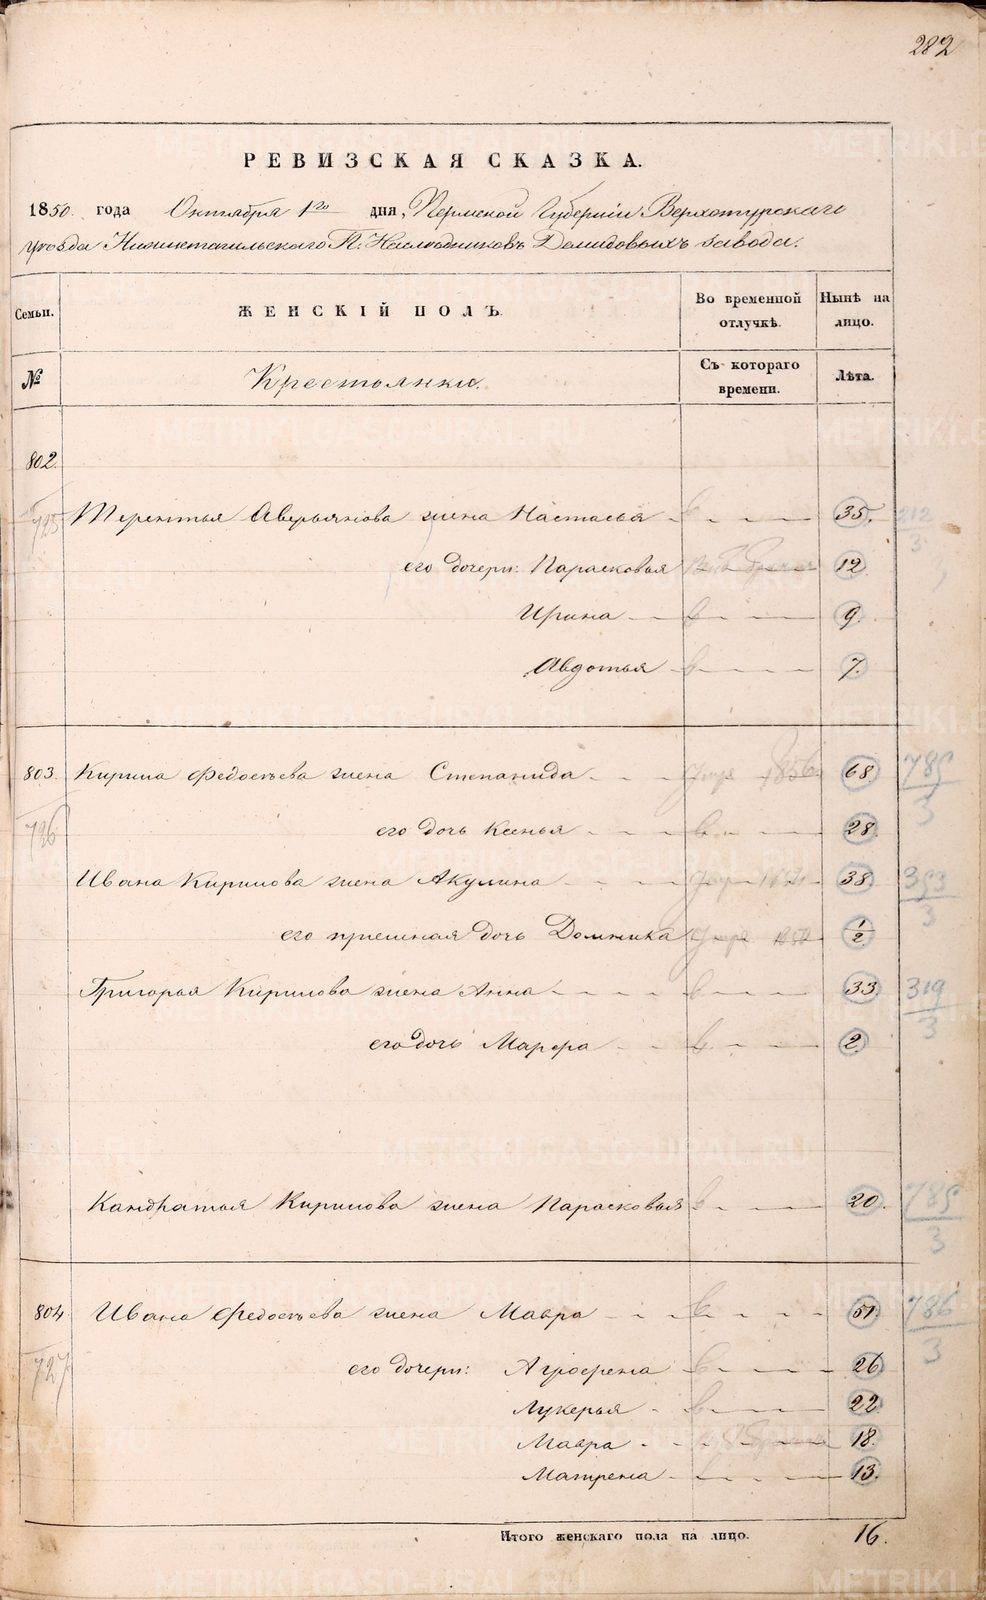 282
РЕВИЗСКАЯ СКАЗКА.
1850 года Октября 1го дня, Пермской Губерніи Верхотурскаго
уѣзда Нижнетагильскаго П: Наслѣдниковъ Демидовыхъ завода.
Семьи. ЖЕНСКІЙ ПОЛЪ. Во временной отлучкѣ. Нынѣ на лицо.
№ Крестьянки. Съ котораго времени. Лѣта.
802.
725 Терентья Аверьянова жена Настасья 35. 212/3
его дочери: Парасковья 12
Ирина 9.
Авдотья 7.
803. Кирила Федосѣева жена Степанида умре 1856 68 785/3
726 его дочь Ксенья 28
Ивана Кирилова жена Акулина 38. 353/3
его пріемная дочь Домника умре 1/2
Григорья Кирилова жена Анна 33. 319/3
его дочь Марфа 2.
Кандратья Кирилова жена Парасковья 20. 785/3
804 Ивана Федосѣева жена Мавра 51. 786/3
727 его дочери: Агрофена 26
Лукерья 22
Мавра 18.
Матрена 13.
Итого женскаго пола на лицо. 16.
METRIKI.GASO-URAL.RU